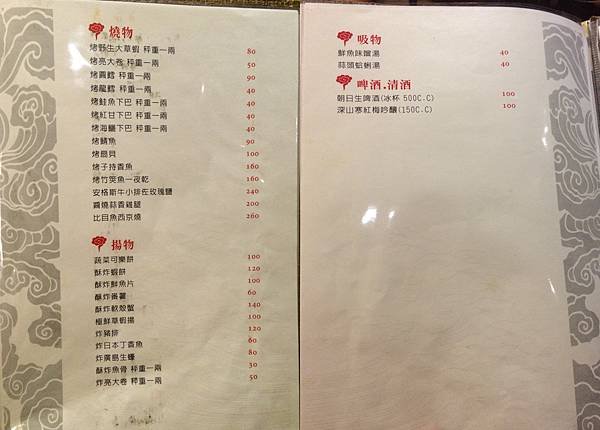 燒物
烤野生大草蝦 秤重一兩 80
烤亮大卷 秤重一兩 50
烤圓鱈 秤重一兩 90
烤龍鱈 秤重一兩 40
烤鮭魚下巴 秤重一兩 40
烤紅甘下巴 秤重一兩 40
烤海鱺下巴 秤重一兩 40
烤鯖魚 90
烤扇貝 100
烤子持香魚 160
烤竹筴魚一夜乾 160
安格斯牛小排佐玫瑰鹽 240
醬燒蒜香雞腿 200
比目魚西京燒 260
揚物
蔬菜可樂餅 100
酥炸蝦餅 120
酥炸鮮魚片 100
酥炸蕃薯 60
酥炸軟殼蟹 140
極鮮草蝦揚 100
炸豬排 120
炸日本丁香魚 60
炸廣島生蠔 80
酥炸魚骨 秤重一兩 30
炸亮大卷 秤重一兩 50
吸物
鮮魚味噌湯 40
蒜頭蛤蜊湯 40
啤酒.清酒
朝日生啤酒(冰杯 500C.C) 100
深山寒紅梅吟釀(150C.C) 100